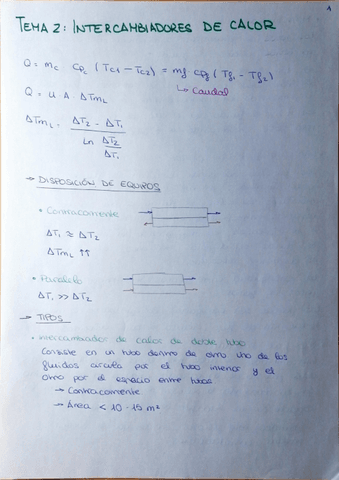 1
TEMA 2: INTERCAMBIADORES DE CALOR
Q = mc cpc (Tc1 - Tc2) = mf cpf (Tf1 - Tf2)
↳ Caudal
Q = U A · ΔTmL
ΔTmL = ΔT2 - ΔT1
Ln ΔT2
ΔT1
→ DISPOSICIÓN DE EQUIPOS
• Contracorriente
ΔT1 ≅ ΔT2
ΔTmL ↑↑
• Paralelo
ΔT1 >> ΔT2
→ TIPOS
• Intercambiador de calor de doble tubo
Consiste en un tubo dentro de otro. Uno de los
fluidos circula por el tubo interior y el
otro por el espacio entre tubos.
→ Contracorriente
→ Área < 10-15 m²